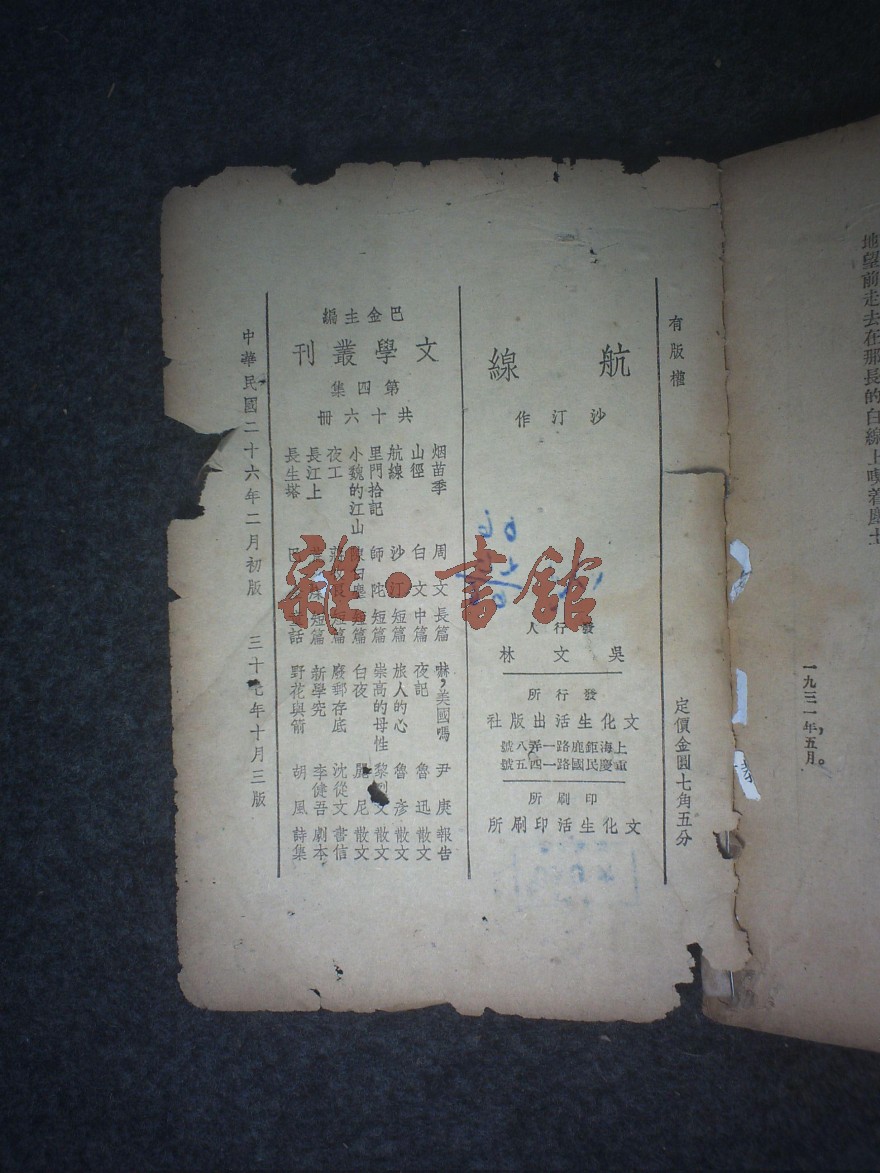 地望前走去在那長的白線上嗅着塵土
一九三一年，五月。
有版權
定價金圓七角五分
航線
沙汀作
發行人
吳文林
發行所
文化生活出版社
上海鉅鹿路一弄八號
重慶民國路一四五號
印刷所
文化生活印刷所
巴金主編
文學叢刊
第四集
共十六冊
烟苗季 周文 長篇
山徑 白文 中篇
航線 沙汀 短篇
里門拾記 師陀 短篇
小魏的江山 陳白塵 短篇
夜工 短篇
長江上 短篇
長生塔 巴 話
嚇，美國嗎 尹庚 報告
夜記 魯迅 散文
旅人的心 魯彥 散文
崇高的母性 黎 文 散文
白夜 麗尼 散文
廢郵存底 沈從文 書信
新學究 李健吾 劇本
野花與箭 胡風 詩集
中華民國二十六年二月初版 三十七年十月三版
雜·書館